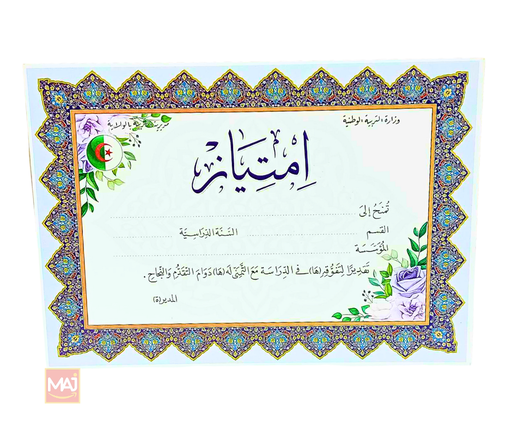 وزارة التربية الوطنية
بالولاية
امتياز
تمنح إلى
القسم السنة الدراسية
المؤسسة
تقديرا لتفوقه(ها) في الدراسة مع التمني له(ها) دوام التقدم والنجاح .
المدير(ة)
MAJ